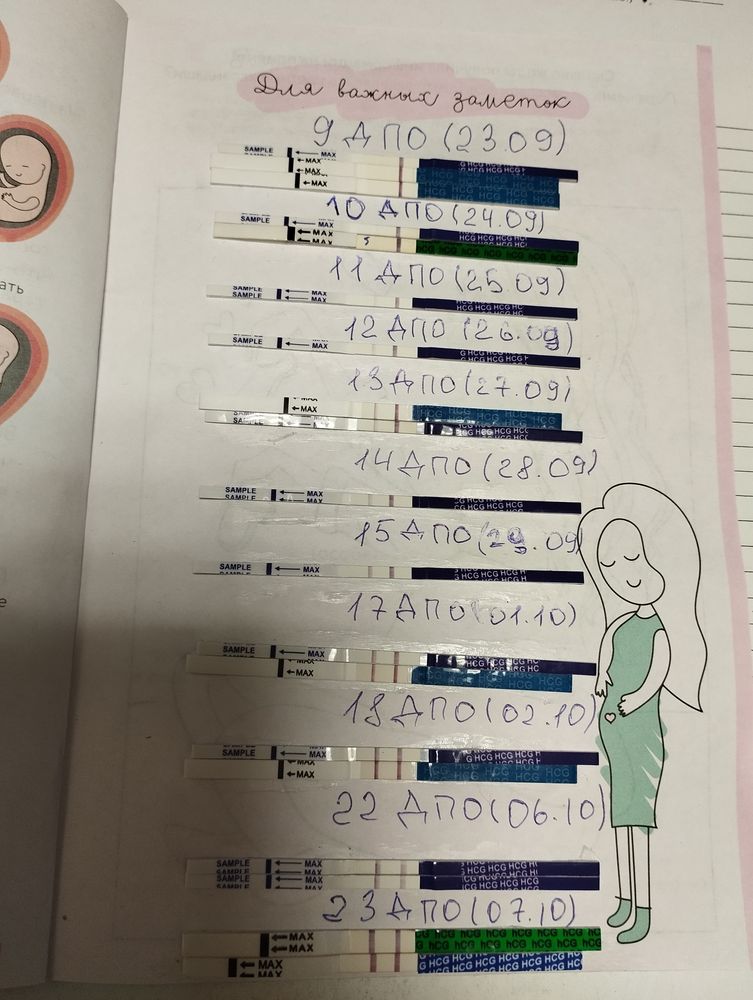 Для важных заметок
9 ДПО (23.09)
SAMPLE MAX
SAMPLE MAX
MAX
MAX
HCG HCG HCG HCG
HCG HCG HCG HCG
10 ДПО (24.09)
SAMPLE MAX
MAX
MAX
HCG HCG HCG HCG
hCG hCG hCG hCG hCG
11 ДПО (25.09)
SAMPLE MAX
SAMPLE MAX
HCG HCG HCG HC
12 ДПО (26.09)
SAMPLE MAX
G HCG HCG HCG
13 ДПО (27.09)
MAX
MAX
SAMPLE MAX
HCG HCG HCG
14 ДПО (28.09)
SAMPLE MAX
SAMPLE MAX
HCG HCG HCG
15 ДПО (29.09)
SAMPLE MAX
HCG HCG HCG
17 ДПО (01.10)
SAMPLE MAX
MAX
HCG HCG HC
HCG HCG
18 ДПО (02.10)
SAMPLE MAX
MAX
G HCG HCG HCG
HCG HCG HCG HCG
22 ДПО (06.10)
SAMPLE MAX
SAMPLE MAX
SAMPLE MAX
HCG HCG HCG HCG
CG HCG HCG HCG
23 ДПО (07.10)
MAX
MAX
hCG hCG hCG hCG hCG
G hCG hCG hCG hCG hCG
MAX
G HCG HCG HCG HCG HCG
ать
е